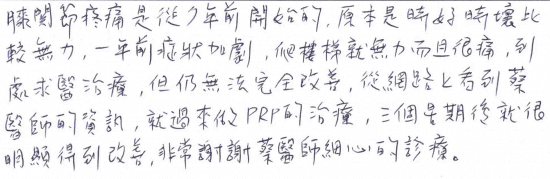 膝關節疼痛是從多年前開始的，原本是時好時壞比
較無力，一年前症狀加劇，爬樓梯就無力而且很痛，到
處求醫治療，但仍無法完全改善，從網路上看到蔡
醫師的資訊，就過來做PRP的治療，三個星期後就很
明顯得到改善，非常謝謝蔡醫師細心的診療。